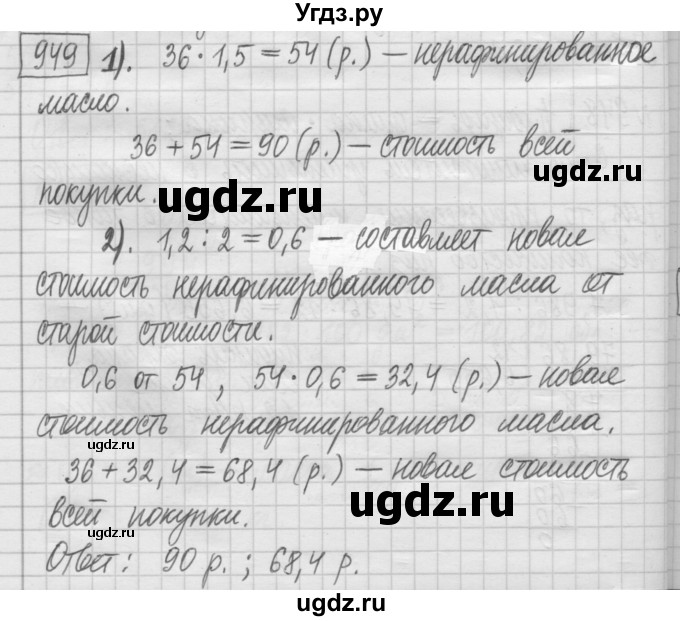 Угдз.ру
949 1). 36 · 1,5 = 54 (р.) — нерафинированное
масло.
36 + 54 = 90 (р.) — стоимость всей
ugdz.ru
покупки.
ugdz.ru
2). 1,2 : 2 = 0,6 — составляет новая
стоимость нерафинированного масла от
ugdz.ru
старой стоимости.
0,6 от 54, 54 · 0,6 = 32,4 (р.) — новая
стоимость нерафинированного масла.
ugdz.ru
36 + 32,4 = 68,4 (р.) — новая стоимость
ugdz.ru
всей покупки.
Ответ: 90 р.; 68,4 р.
ugdz.ru